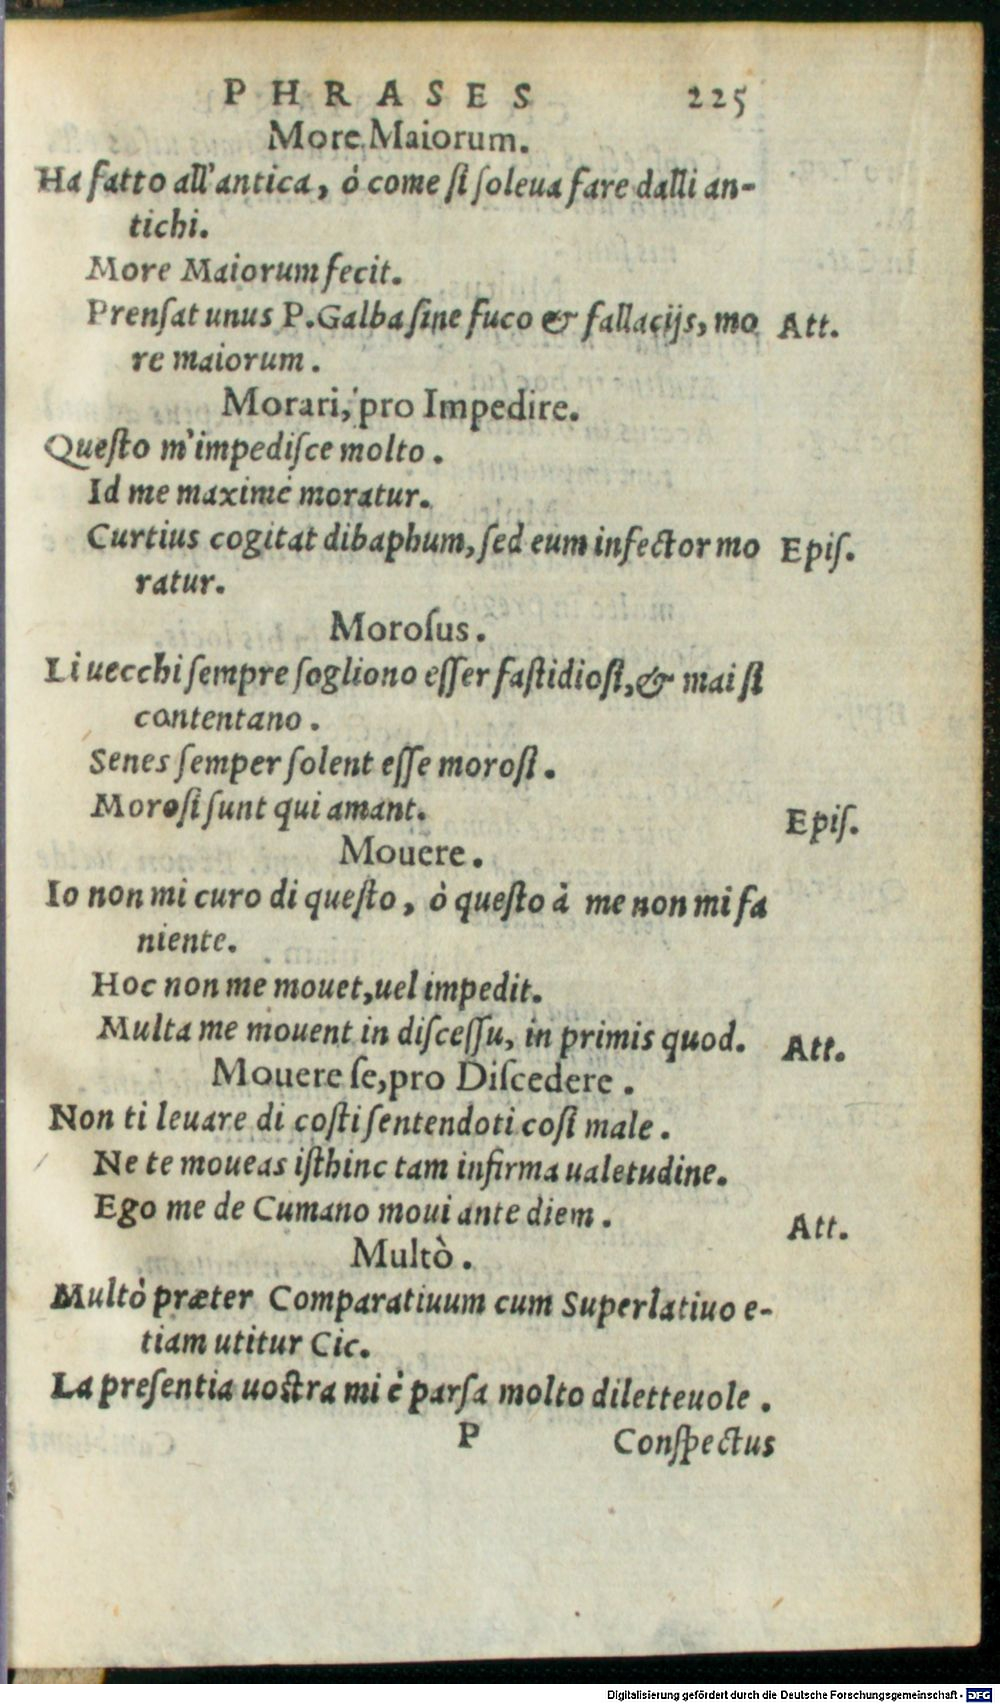 PHRASES 225
More Maiorum.
Ha fatto all'antica, ò come ſi ſoleua fare dalli an-
tichi.
More Maiorum fecit.
Prenſat unus P. Galba ſine fuco & fallacijs, mo Att.
re maiorum.
Morari, pro Impedire.
Queſto m'impediſce molto.
Id me maximè moratur.
Curtius cogitat dibaphum, ſed eum infector mo Epiſ.
ratur.
Moroſus.
Li uecchi ſempre ſogliono eſſer faſtidioſi, & mai ſi
contentano.
Senes ſemper ſolent eſſe moroſi.
Moroſi ſunt qui amant. Epiſ.
Mouere.
Io non mi curo di queſto, ò queſto à me non mi fa
niente.
Hoc non me mouet, uel impedit.
Multa me mouent in diſceſſu, in primis quod. Att.
Mouere ſe, pro Diſcedere.
Non ti leuare di coſti ſentendoti coſi male.
Ne te moueas iſthinc tam infirma ualetudine.
Ego me de Cumano moui ante diem. Att.
Multò.
Multò præter Comparatiuum cum Superlatiuo e-
tiam utitur Cic.
La preſentia uoſtra mi è parſa molto diletteuole.
P Conſpectus
Digitalisierung gefördert durch die Deutsche Forschungsgemeinschaft - DFG